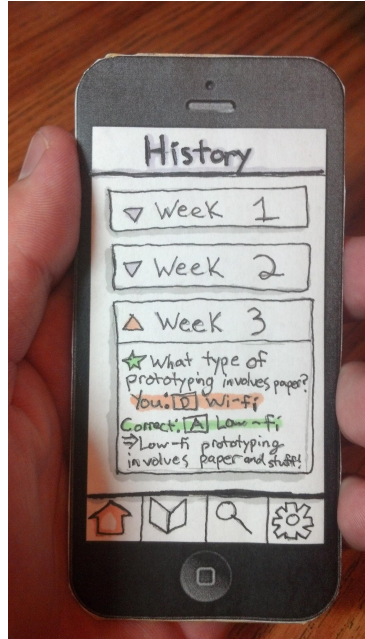 History
Week 1
Week 2
Week 3
What type of
prototyping involves paper?
You: D Wi-fi
Correct: A Low-fi
⇒Low-fi prototyping
involves paper and stuff!